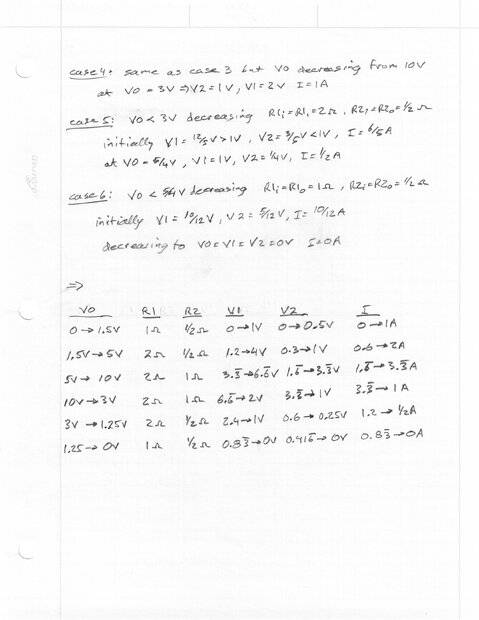 case 4: same as case 3 but V0 decreasing from 10V
at V0 = 3V ⇒ V2 = 1V, V1 = 2V I = 1A
case 5: V0 < 3V decreasing R1i = R1, = 2Ω, R2i = R2o = 1/2 Ω
initially V1 = 12/5V > 1V, V2 = 3/5V < 1V, I = 6/5A
at V0 = 5/4V, V1 = 1V, V2 = 1/4V, I = 1/2A
case 6: V0 < 5/4V decreasing R1i = R1o = 1Ω, R2i = R2o = 1/2Ω
initially V1 = 10/12V, V2 = 5/12V, I = 10/12A
decreasing to V0 = V1 = V2 = 0V I = 0A
⇒
V0 R1 R2 V1 V2 I
0 → 1.5V 1Ω 1/2Ω 0 → 1V 0 → 0.5V 0 → 1A
1.5V → 5V 2Ω 1/2Ω 1.2 → 4V 0.3 → 1V 0.6 → 2A
5V → 10V 2Ω 1Ω 3.3̅ → 6.6̅V 1.6̅ → 3.3̅V 1.6̅ → 3.3̅A
10V → 3V 2Ω 1Ω 6.6̅ → 2V 3.3̅ → 1V 3.3̅ → 1A
3V → 1.25V 2Ω 1/2Ω 2.4 → 1V 0.6 → 0.25V 1.2 → 1/2A
1.25 → 0V 1Ω 1/2Ω 0.83̅ → 0V 0.416̅ → 0V 0.83̅ → 0A